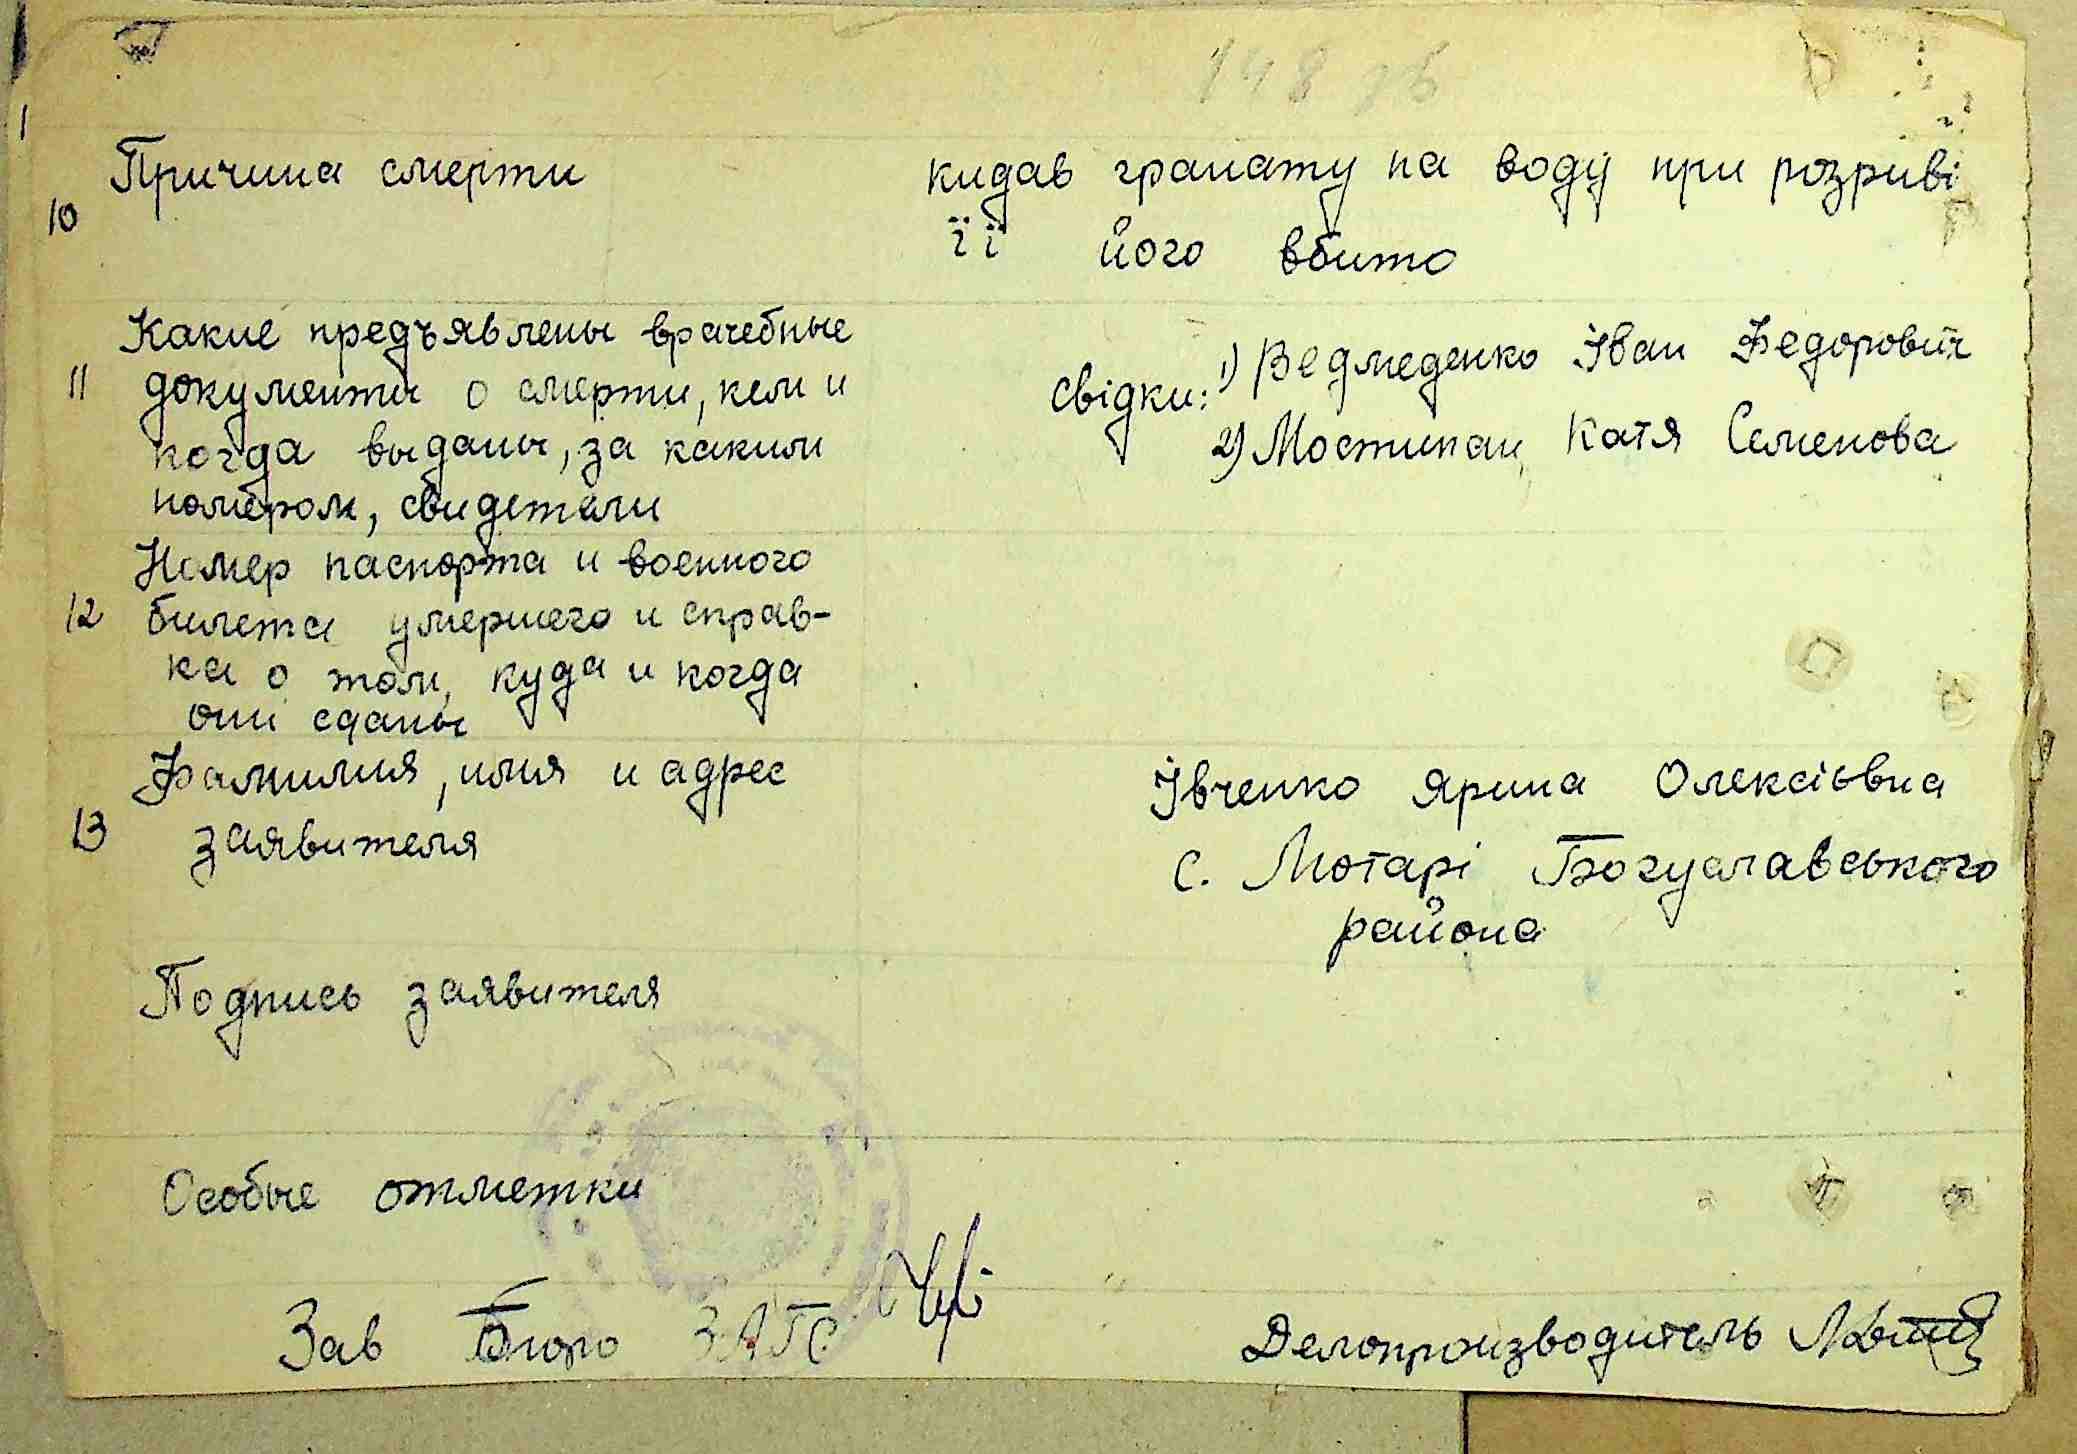 148 зв
Причина смерти
кидав гранату на воду при розриві
10
її його вбито
Какие предъявлены врачебные
1) Ведмеденко Іван Федорович
11 документы о смерти, кем и
свідки:
когда выданы, за каким
2) Мостипан Катя Семенова
номером, свидетели
Номер паспорта и военного
12 билета умершего и справ-
ка о том, куда и когда
они сданы
Фамилия, имя и адрес
Івченко Ярина Олексіівна
13 заявителя
с. Мотарі Богуславського
района
Подпись заявителя
Особые отметки
Зав Бюро ЗАГС
Делопроизводитель